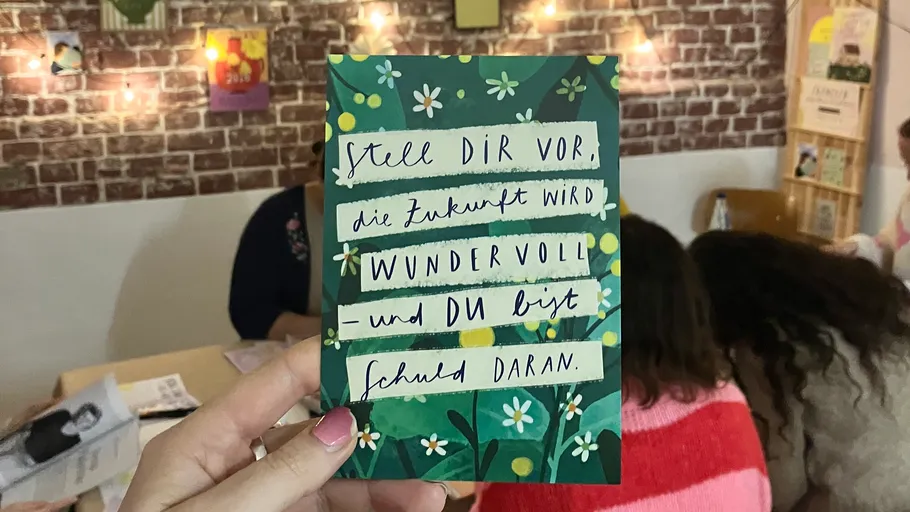 Stell DIR VOR,
die Zukunft WIRD
WUNDERVOLL
– und DU bist
Schuld DARAN.